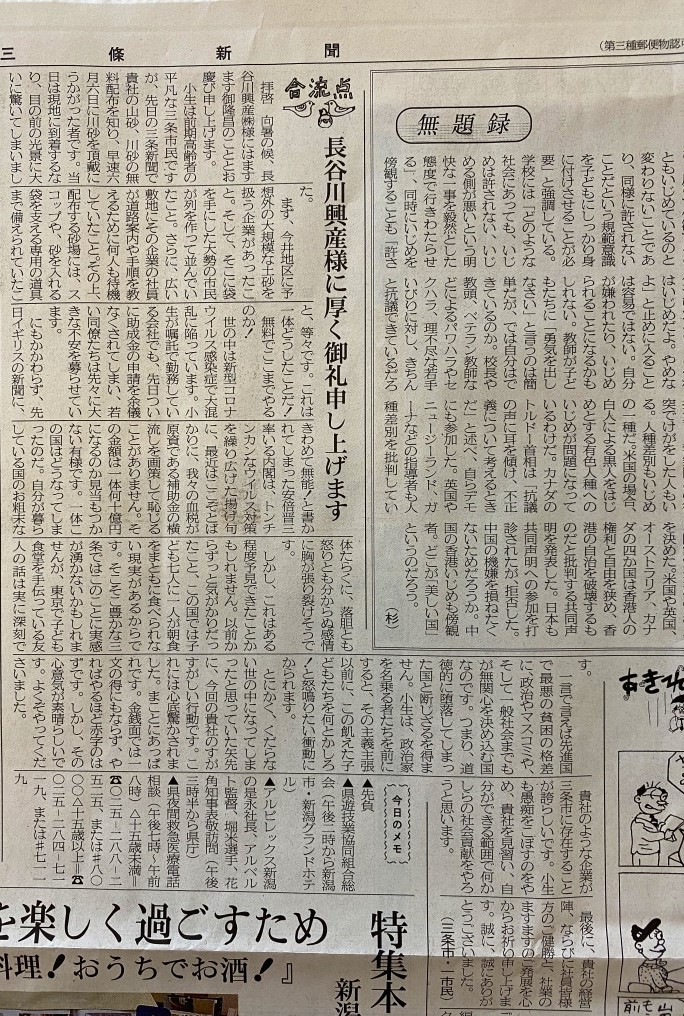 三條新聞
（第三種郵便物認
無題録
ともいじめているのと
変わりないことであ
り、同様に許されない
ことだという規範意識
を子どもにしっかり身
に付けさせることが必
要」と強調している。
学校には「どのような
社会にあっても、いじ
めは許されない、いじ
める側が悪いという明
快な一事を毅然とした
態度で行きわたらせ
る」、同時にいじめを
傍観することも「許さ
はいじめだよ。やめな
よ」と止めに入ること
は容易ではない。自分
が嫌われたり、いじめ
られることになるかも
しれない。教師が子ど
もたちに「勇気を出し
なさい」と言うのは簡
単だが、では自分はで
きているのか。校長や
教頭、ベテラン教師な
どによるパワハラやセ
クハラ、理不尽な若手
いびりに対し、きちん
と抗議できているだろ
突でけがをした人もい
る。人種差別もいじめ
の一種だ。米国の場合、
白人による黒人をはじ
めとする有色人種への
いじめが問題になって
いるわけだ。カナダの
トルドー首相は「抗議
の声に耳を傾け、不正
義について考えるとき
だ」と述べ、自らデモ
にも参加した。英国や
ニュージーランド、ガ
ーナなどの指導者も人
種差別を批判してい
を決めた。米国や英国、
オーストラリア、カナ
ダの四か国は香港人の
権利と自由を狭め、香
港の自治を破壊するも
のだと批判する共同声
明を発表した。日本も
共同声明への参加を打
診されたが、拒否した。
中国の機嫌を損ねたく
ないためだろうか。中
国の香港いじめも傍観
者。どこが「美しい国」
というのだろう。
（杉）
合流点
長谷川興産様に厚く御礼申し上げます
拝啓　向暑の候、長
谷川興産㈱様にはます
ます御隆昌のこととお
慶び申し上げます。
小生は前期高齢者の
平凡な三条市民です
が、先日の三条新聞で
貴社の山砂、川砂の無
料配布を知り、早速六
月六日に川砂を頂戴に
うかがった者です。当
日は現地に到着するな
り、目の前の光景に大
いに驚いてしまいまし
た。
まず、今井地区に予
想外の大規模な土砂を
扱う企業があったこ
と。そして、そこに袋
を手にした大勢の市民
が列を作って並んでい
たこと。さらに、広い
敷地にその企業の社員
が道路案内や手順を教
えるために何人も待機
していたこと。その上、
配布する砂場には、ス
コップや、砂を入れる
袋を支える専用の道具
まで備えられていたこ
と、等々です。これは
一体どうしたことだ！
無料でここまでやる
のか！
世の中は新型コロナ
ウイルス感染症で大混
乱に陥っています。小
生が嘱託で勤務してい
る会社でも、先日つい
に助成金の申請を余儀
なくされてしまい、若
い同僚たちは先々に大
きな不安を募らせてい
ます。
にもかかわらず、先
日イギリスの新聞に、
きわめて無能！と書か
れてしまった安倍晋三
率いる内閣は、トンチ
ンカンなウイルス対策
を繰り広げた揚げ句
に、最近はこそとば
かりに、我々の血税が
原資である補助金の横
流しを画策して恥じる
ことがありません。そ
の金額は一体何十億円
になるのか見当もつか
ない有様です。一体こ
の国はどうなってしま
ったのだ。自分が暮ら
している国のお粗末な
体たらくに、落胆とも
怒りとも分からぬ感情
に胸が張り裂けそうで
す。
しかし、これはある
程度予見できたことか
もしれません。以前か
らずっと気がかりだっ
たこと、この国では子
ども七人に一人が朝食
をまともに食べられな
い現実があるからで
す。そこそこ豊かな三
条ではこのことに実感
が湧かないかもしれま
せんが、東京で子ども
食堂を手伝っている友
人の話は実に深刻で
す。
一言で言えば先進国
で最悪の貧困の格差
に、政治やマスコミや、
そして一般社会までも
が無関心を決め込む国
なのです。つまり、道
徳的に堕落してしまっ
た国と断じざるを得ま
せん。小生は、政治家
を名乗る者たちを前に
すると、その主義主張
以前に、この飢えた子
どもたちを何とかしろ
！と怒鳴りたい衝動に
かられます。
とにかく、くだらな
い世の中になってしま
ったと思っていた矢先
に、今回の貴社のすが
すがしい行動です。こ
れには心底驚かされま
した。まことにあっぱ
れです。金銭面では一
文の得にもならず、や
ればやるほど赤字のは
ずです。しかし、その
心意気が素晴らしいで
す。よくぞやってくだ
さいました。
貴社のような企業が
三条市に存在すること
が誇らしいです。小生
も愚痴をこぼすのをや
め、貴社を見習い、自
分ができる範囲で何か
しらの社会貢献をやろ
うと思います。
最後に、貴社の経営
陣、ならびに社員皆様
方のご健勝と、社業の
ますますのご発展を心
からお祈り申し上げま
す。誠に、誠にありが
とうございました。
（三条市・市民）
今日のメモ
▲先負
▲県遊技業協同組合総
会（午後一時から新潟
市・新潟グランドホテ
ル）
▲アルビレックス新潟
の是永社長、アルベル
ト監督、堀米選手、花
角知事表敬訪問（午後
三時半から県庁）
▲県夜間救急医療電話
相談（午後七時～午前
八時）△十五歳未満＝
☎〇二五－二八八－二
五二五、または＃八〇
〇〇△十五歳以上＝☎
〇二五－二八四－七一
一九、または＃七一一
九
特集本
新潟
を楽しく過ごすため
料理！おうちでお酒！』